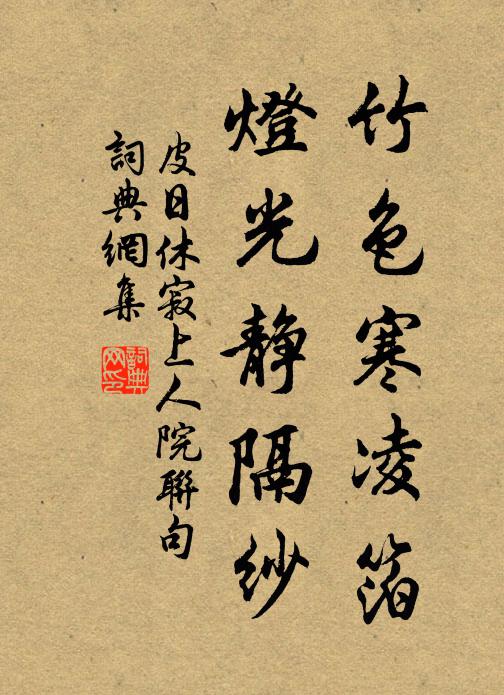 竹色寒凌箔
燈光靜隔紗
皮日休寂上人院聯句
詞典網集
詞典网印